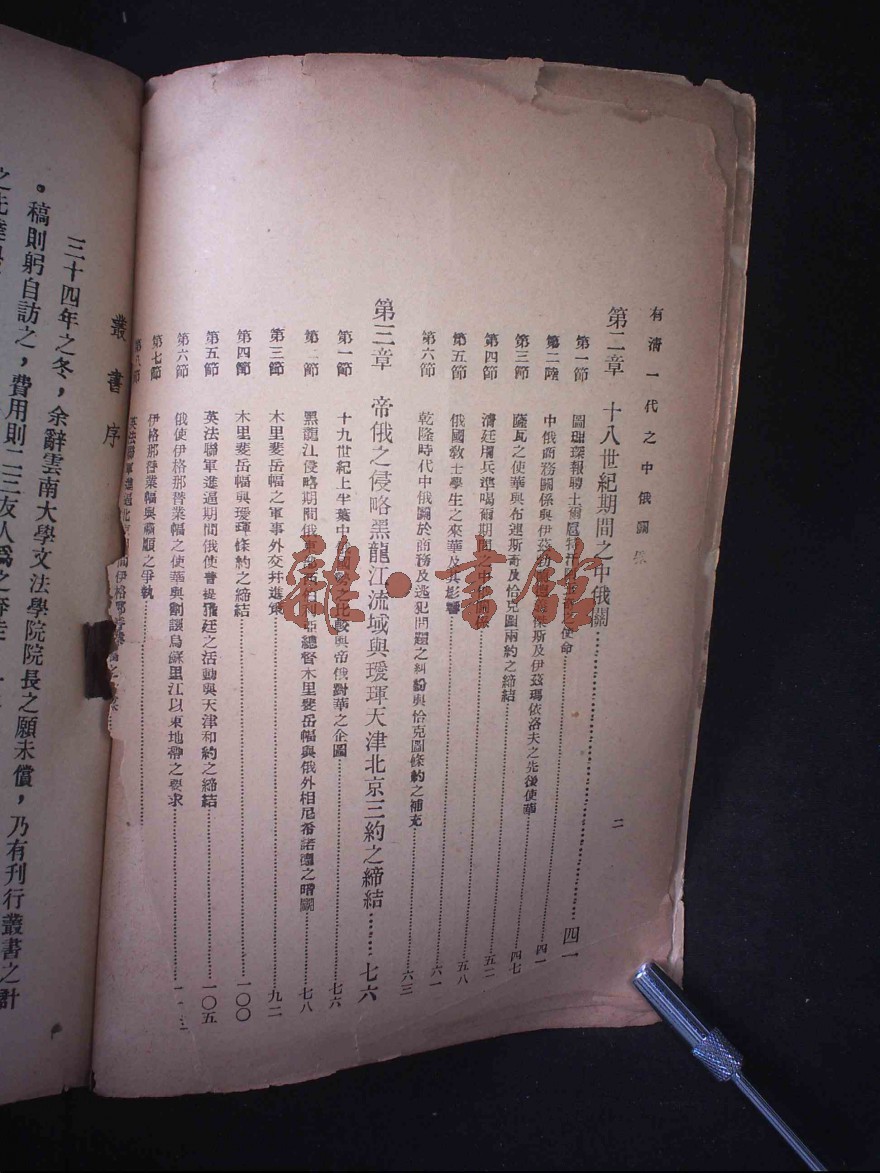 有清一代之中俄關係
二
第二章 十八世紀期間之中俄關……四一
第一節 圖理琛報聘土爾扈特汗阿玉奇之使命……四一
第二陸 中俄商務關係與伊茲勃 傑斯及伊茲瑪依洛夫之先後使華……四七
第三節 薩瓦之使華與布連斯奇及恰克圖兩約之締結……五二
第四節 清廷用兵準噶爾期間之中俄關係……五八
第五節 俄國敎士學生之來華及其影響……六一
第六節 乾隆時代中俄關於商務及逃犯問題之糾紛與恰克圖條約之補充……六三
第三章 帝俄之侵略黑龍江流域與璦琿天津北京三約之締結……七六
第一節 十九世紀上半葉中俄國勢之比較與帝俄對華之企圖……七六
第二節 黑龍江侵略期間俄東部西伯利亞總督木里斐岳幅與俄外相尼希諾德之暗鬭……七八
第三節 木里斐岳幅之軍事外交并進策……九二
第四節 木里斐岳幅與璦琿條約之締結……一〇〇
第五節 英法聯軍進逼期間俄使普提雅廷之活動與天津和約之締結……一〇五
第六節 俄使伊格那替業幅之使華與劃讓烏蘇里江以東地帶之要求……
第七節 伊格那替業幅與肅順之爭執……
第八節 英法聯軍進逼北京期間伊格那替業幅之
叢書序
三十四年之冬，余辭雲南大學文法學院院長之願未償，乃有刊行叢書之計
。稿則躬自訪之，費用則二三友人爲之
之先進
雜·書館